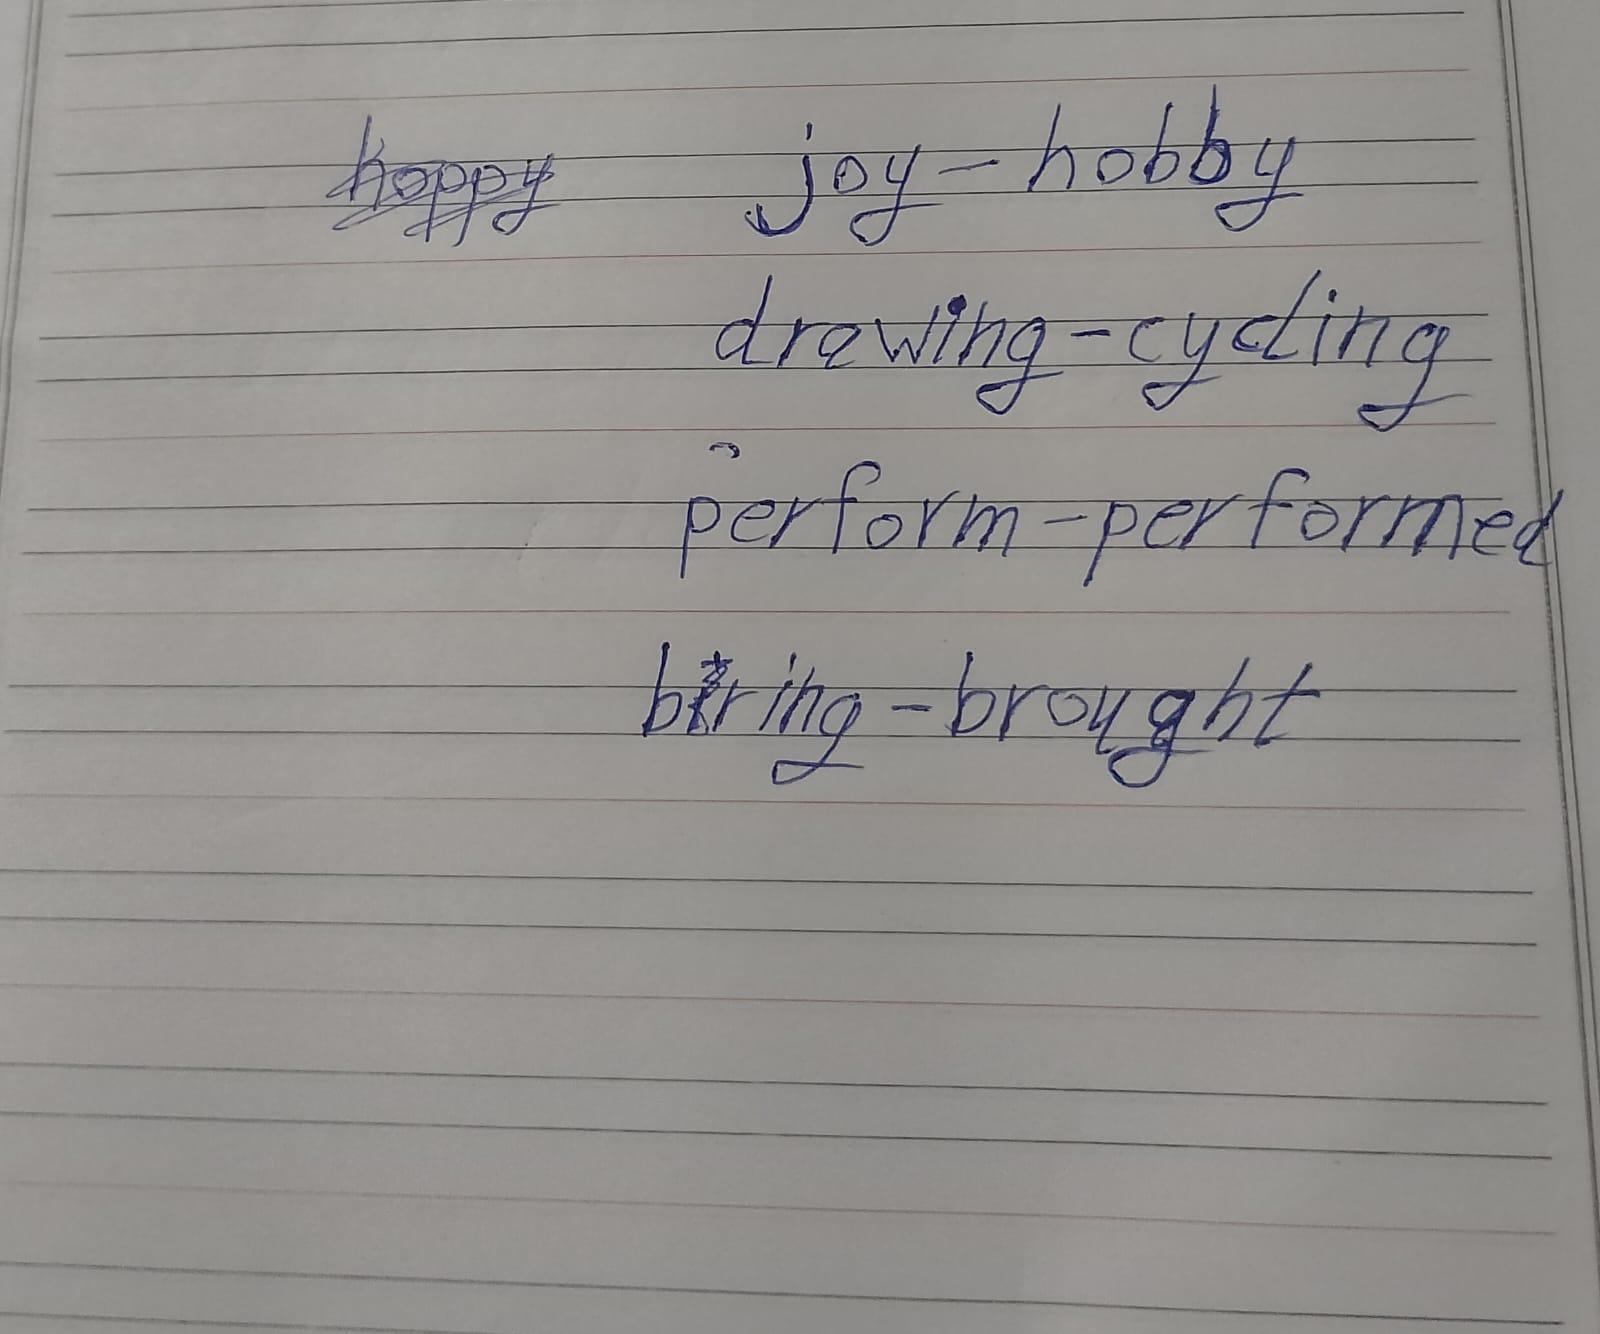 hoppy joy - hobby
drawing - cycling
perform - performed
bring - brought